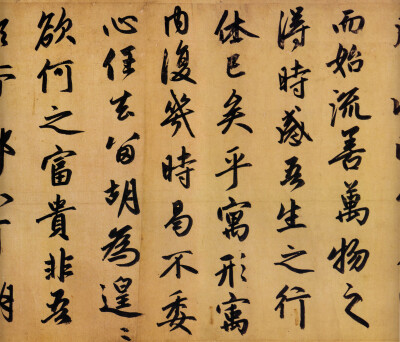 而始流善萬物之
得時感吾生之行
休已矣乎寓形寓
内復幾時曷不委
心任去留胡為遑〻
欲何之富貴非吾